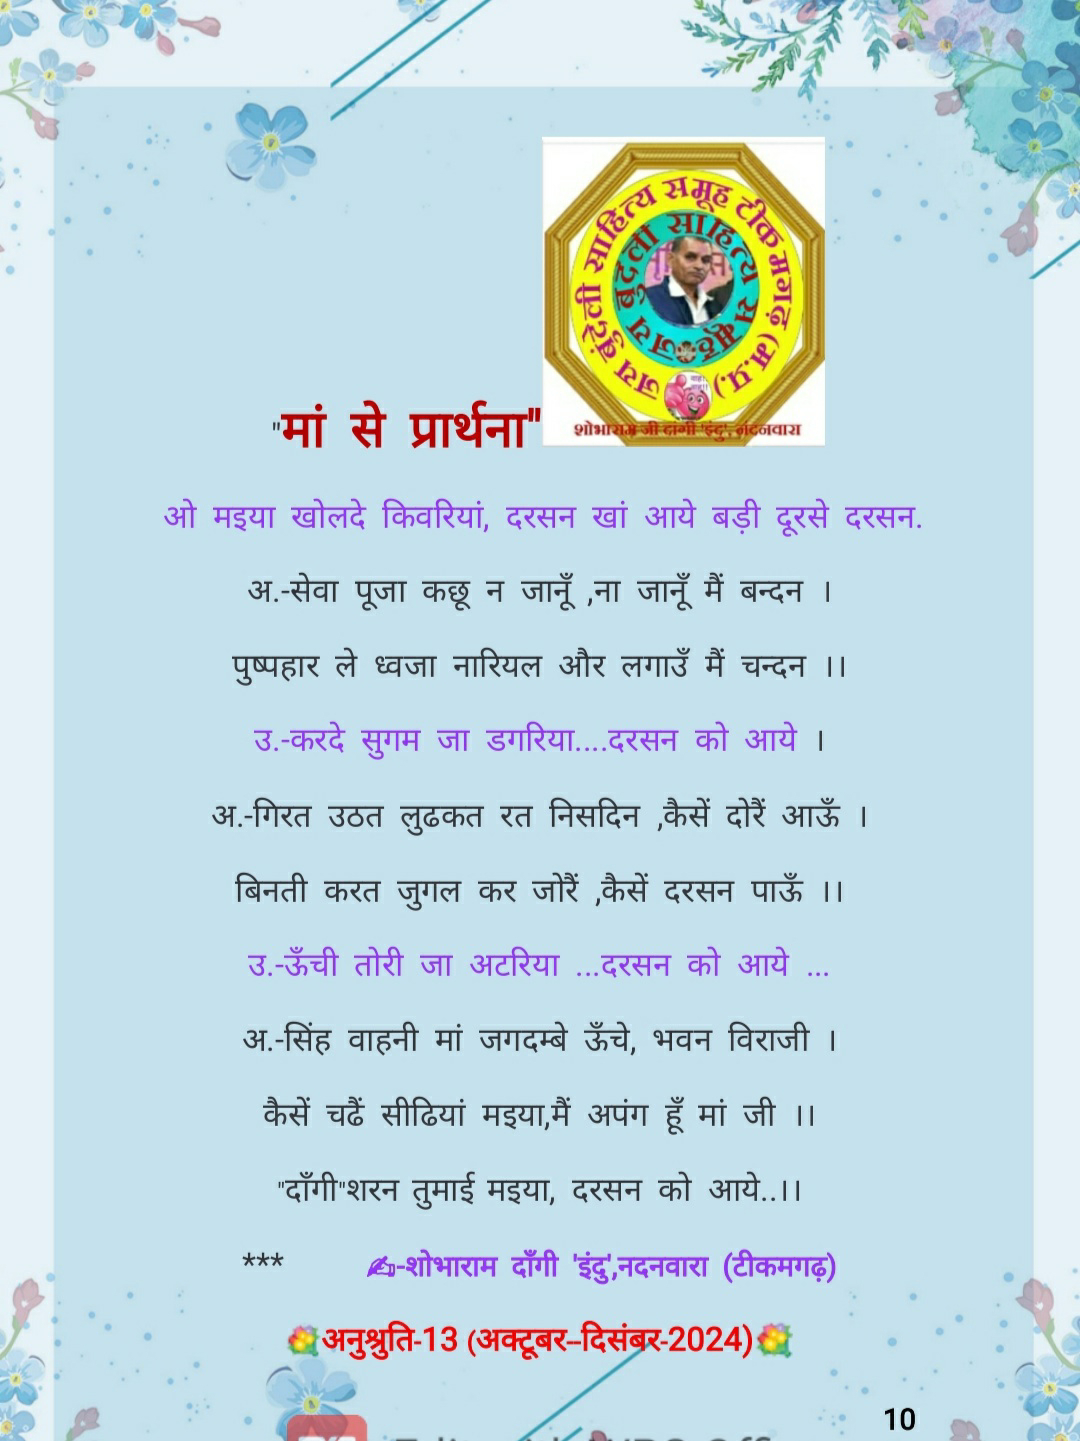 जय बुंदेली साहित्य समूह टीकमगढ़ (म.प्र.)
जय बुंदेली साहित्य समूह
शोभाराम जी दांगी 'इंदु', नंदनवारा
"मां से प्रार्थना"
ओ मइया खोलदे किवरियां, दरसन खां आये बड़ी दूरसे दरसन.
अ.-सेवा पूजा कछू न जानूँ ,ना जानूँ मैं बन्दन ।
पुष्पहार ले ध्वजा नारियल और लगाउँ मैं चन्दन ।।
उ.-करदे सुगम जा डगरिया....दरसन को आये ।
अ.-गिरत उठत लुढकत रत निसदिन ,कैसें दोरैं आऊँ ।
बिनती करत जुगल कर जोरैं ,कैसें दरसन पाऊँ ।।
उ.-ऊँची तोरी जा अटरिया ...दरसन को आये ...
अ.-सिंह वाहनी मां जगदम्बे ऊँचे, भवन विराजी ।
कैसें चढैं सीढियां मइया,मैं अपंग हूँ मां जी ।।
"दाँगी"शरन तुमाई मइया, दरसन को आये..।।
*** ✍-शोभाराम दाँगी 'इंदु',नदनवारा (टीकमगढ़)
अनुश्रुति-13 (अक्टूबर–दिसंबर-2024)
10